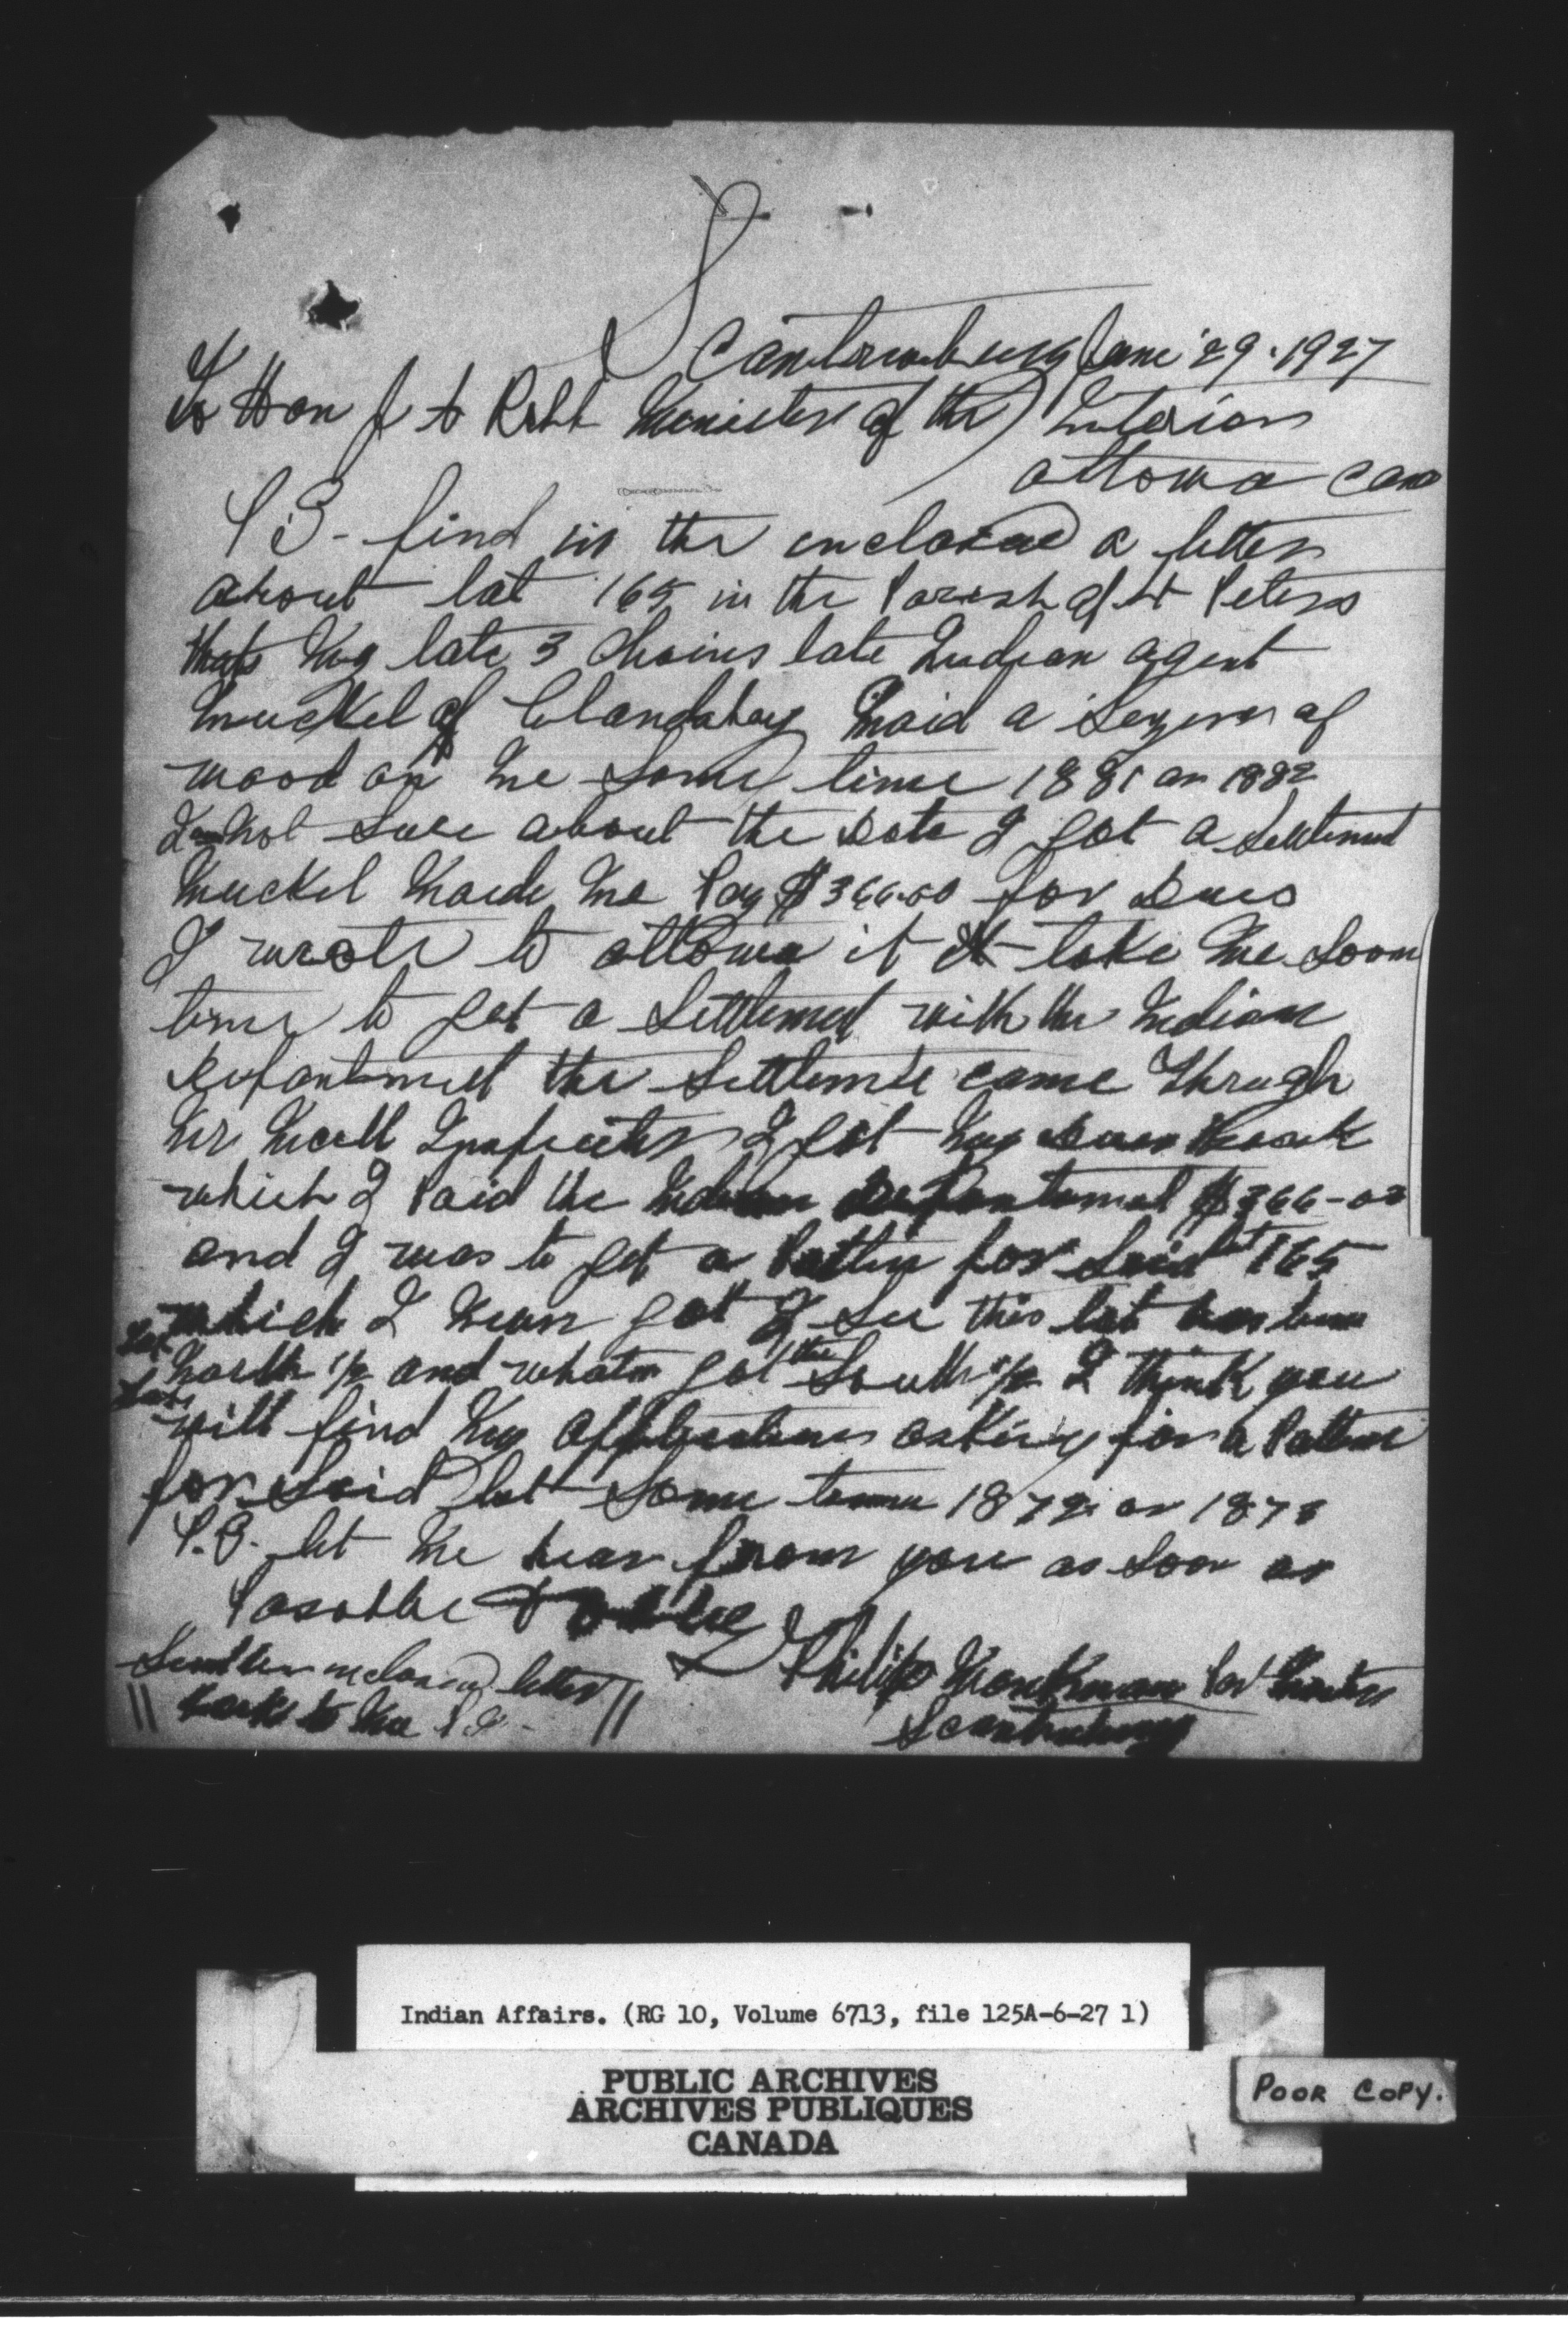 Scanterbury June 29. 1927
To Hon J A Robb Minister of the Interior
Ottowa Can
P S- find in the enclosed a letter
about lot 165 in the Parish of St Peters
thats my lote 3 Chains late Indian agent
Muckel of Clandaboy Maid a Sezeur of
wood on Me Some time 1881 or 1882
I am Not Sure about the Date I got a Settlemet
Muckel Maide Me Pay $ 366.00 for Dues
I wrote to ottowa it take Me Soom
time to get a Settlemet with the Indian
Depantment the Settlemte came Through
Mr Mcoll Inspecter I got My Dues back
which I Paid the Indian Depantament $ 366-00
and I was to get a Patten for Said lot 165
which I never got I See this lot has been
North ½ and whats got the South ½ I think you
will find My Applacation asking for a Patten
for Said lot Some time 1872 or 187
P.S. let Me hear from you as Soon as
Posable
Philip Monkman
Scanterbury
Send the enclosed letter
back to Me P S-
Indian Affairs. (RG 10, Volume 6713, file 125A-6-27 1)
PUBLIC ARCHIVES
ARCHIVES PUBLIQUES
CANADA
POOR COPY.